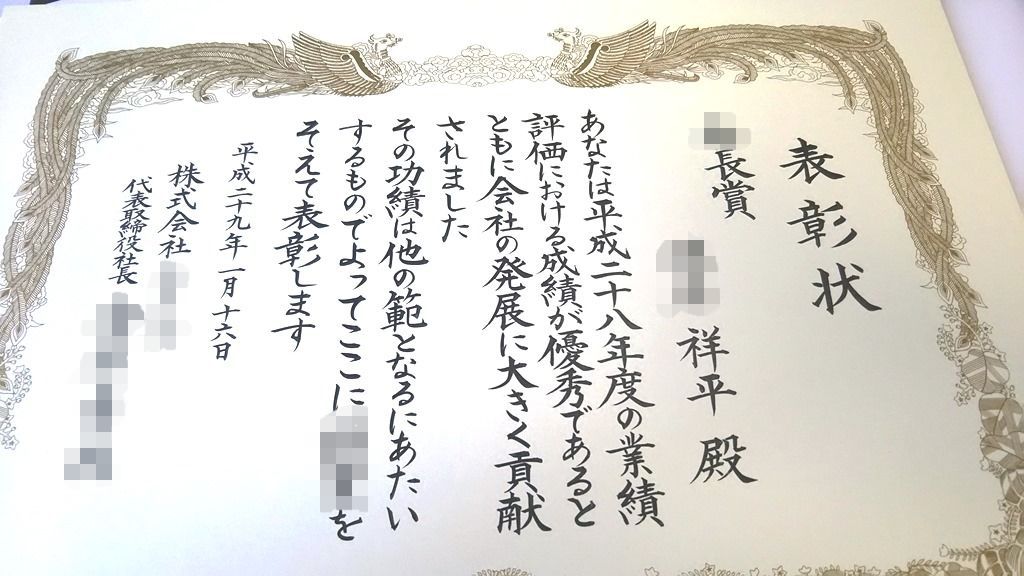 表彰状
長賞
祥平 殿
あなたは平成二十八年度の業績
評価における成績が優秀であると
ともに会社の発展に大きく貢献
されました
その功績は他の範となるにあたい
するものでよってここに を
そえて表彰します
平成二十九年一月十六日
株式会社
代表取締役社長